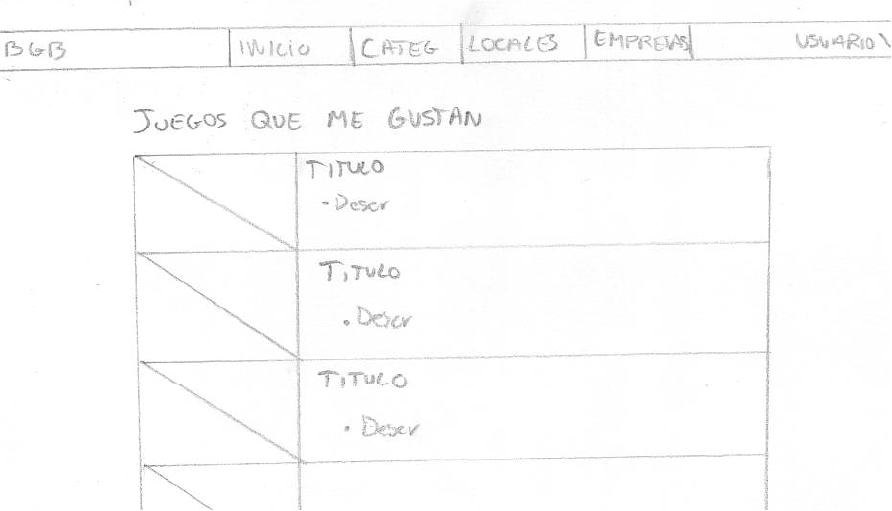 BGB INICIO CATEG LOCALES EMPRESAS USUARIO
JUEGOS QUE ME GUSTAN
TITULO
- Descr
TITULO
. Descr
TITULO
. Descr